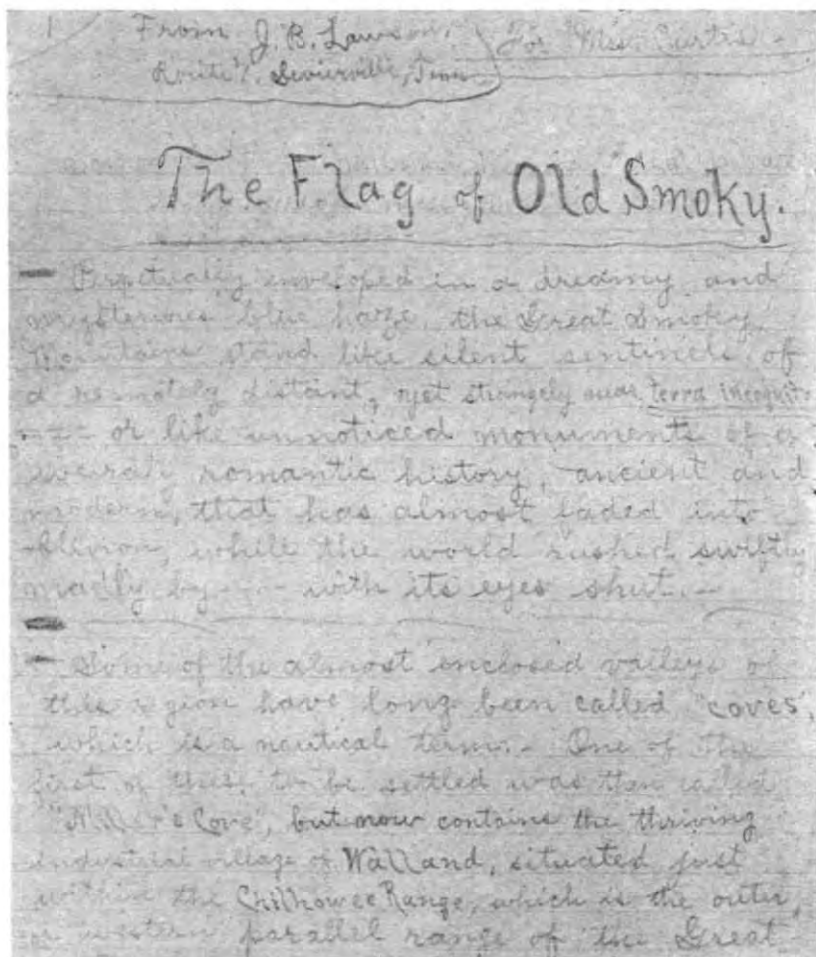 1 From J. B. Lawson, For Mrs. Curtis -
Route 7. Sevierville, Tenn.
The Flag of Old Smoky.
Perpetually enveloped in a dreamy and
mysterious blue haze, the Great Smoky
Mountains stand like silent sentinels of
a remotely distant, yet strangely near terra incognita
- or like unnoticed monuments of a
weirdly romantic history, ancient and
modern, that has almost faded into
oblivion, while the world rushed swiftly
madly by --- with its eyes shut. -
Some of the almost enclosed valleys of
this region have long been called "coves",
which is a nautical term. - One of the
first of these to be settled was then called
"Miller's Cove", but now contains the thriving
industrial village of Walland, situated just
within the Chilhowee Range, which is the outer,
or western parallel range of the Great